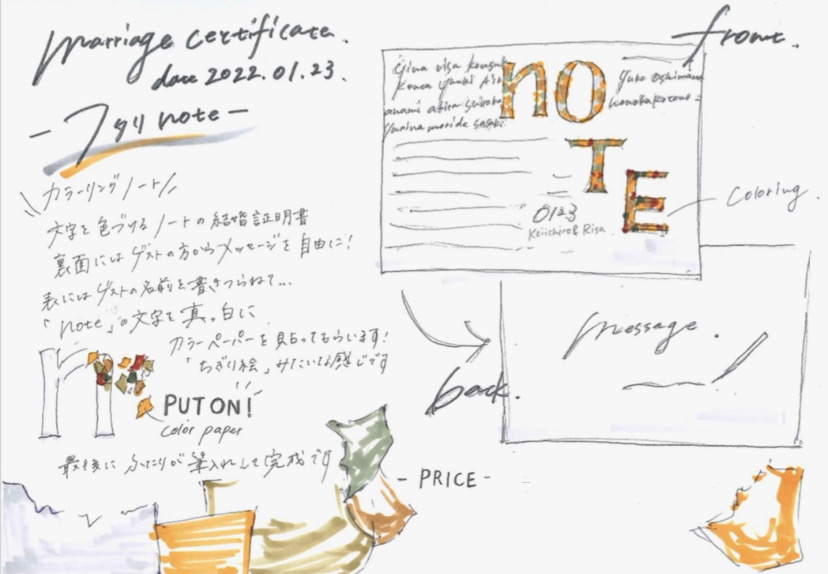 marriage certificate.
date 2022.01.23.
- フタリ note -
カラーリングノート
文字を色づけるノートの結婚証明書
裏面にはゲストの方からメッセージを自由に!
表にはゲストの名前を書きつらねて...
「note」の文字を真っ白に
カラーペーパーを貼ってもらいます!
「ちぎり絵」みたいな感じです
n
PUT ON!
color paper
最後に ふたりが筆入れして完成です
front.
nOTE
0123
Keiichiro & Risa
Coloring.
message.
back.
- PRICE -